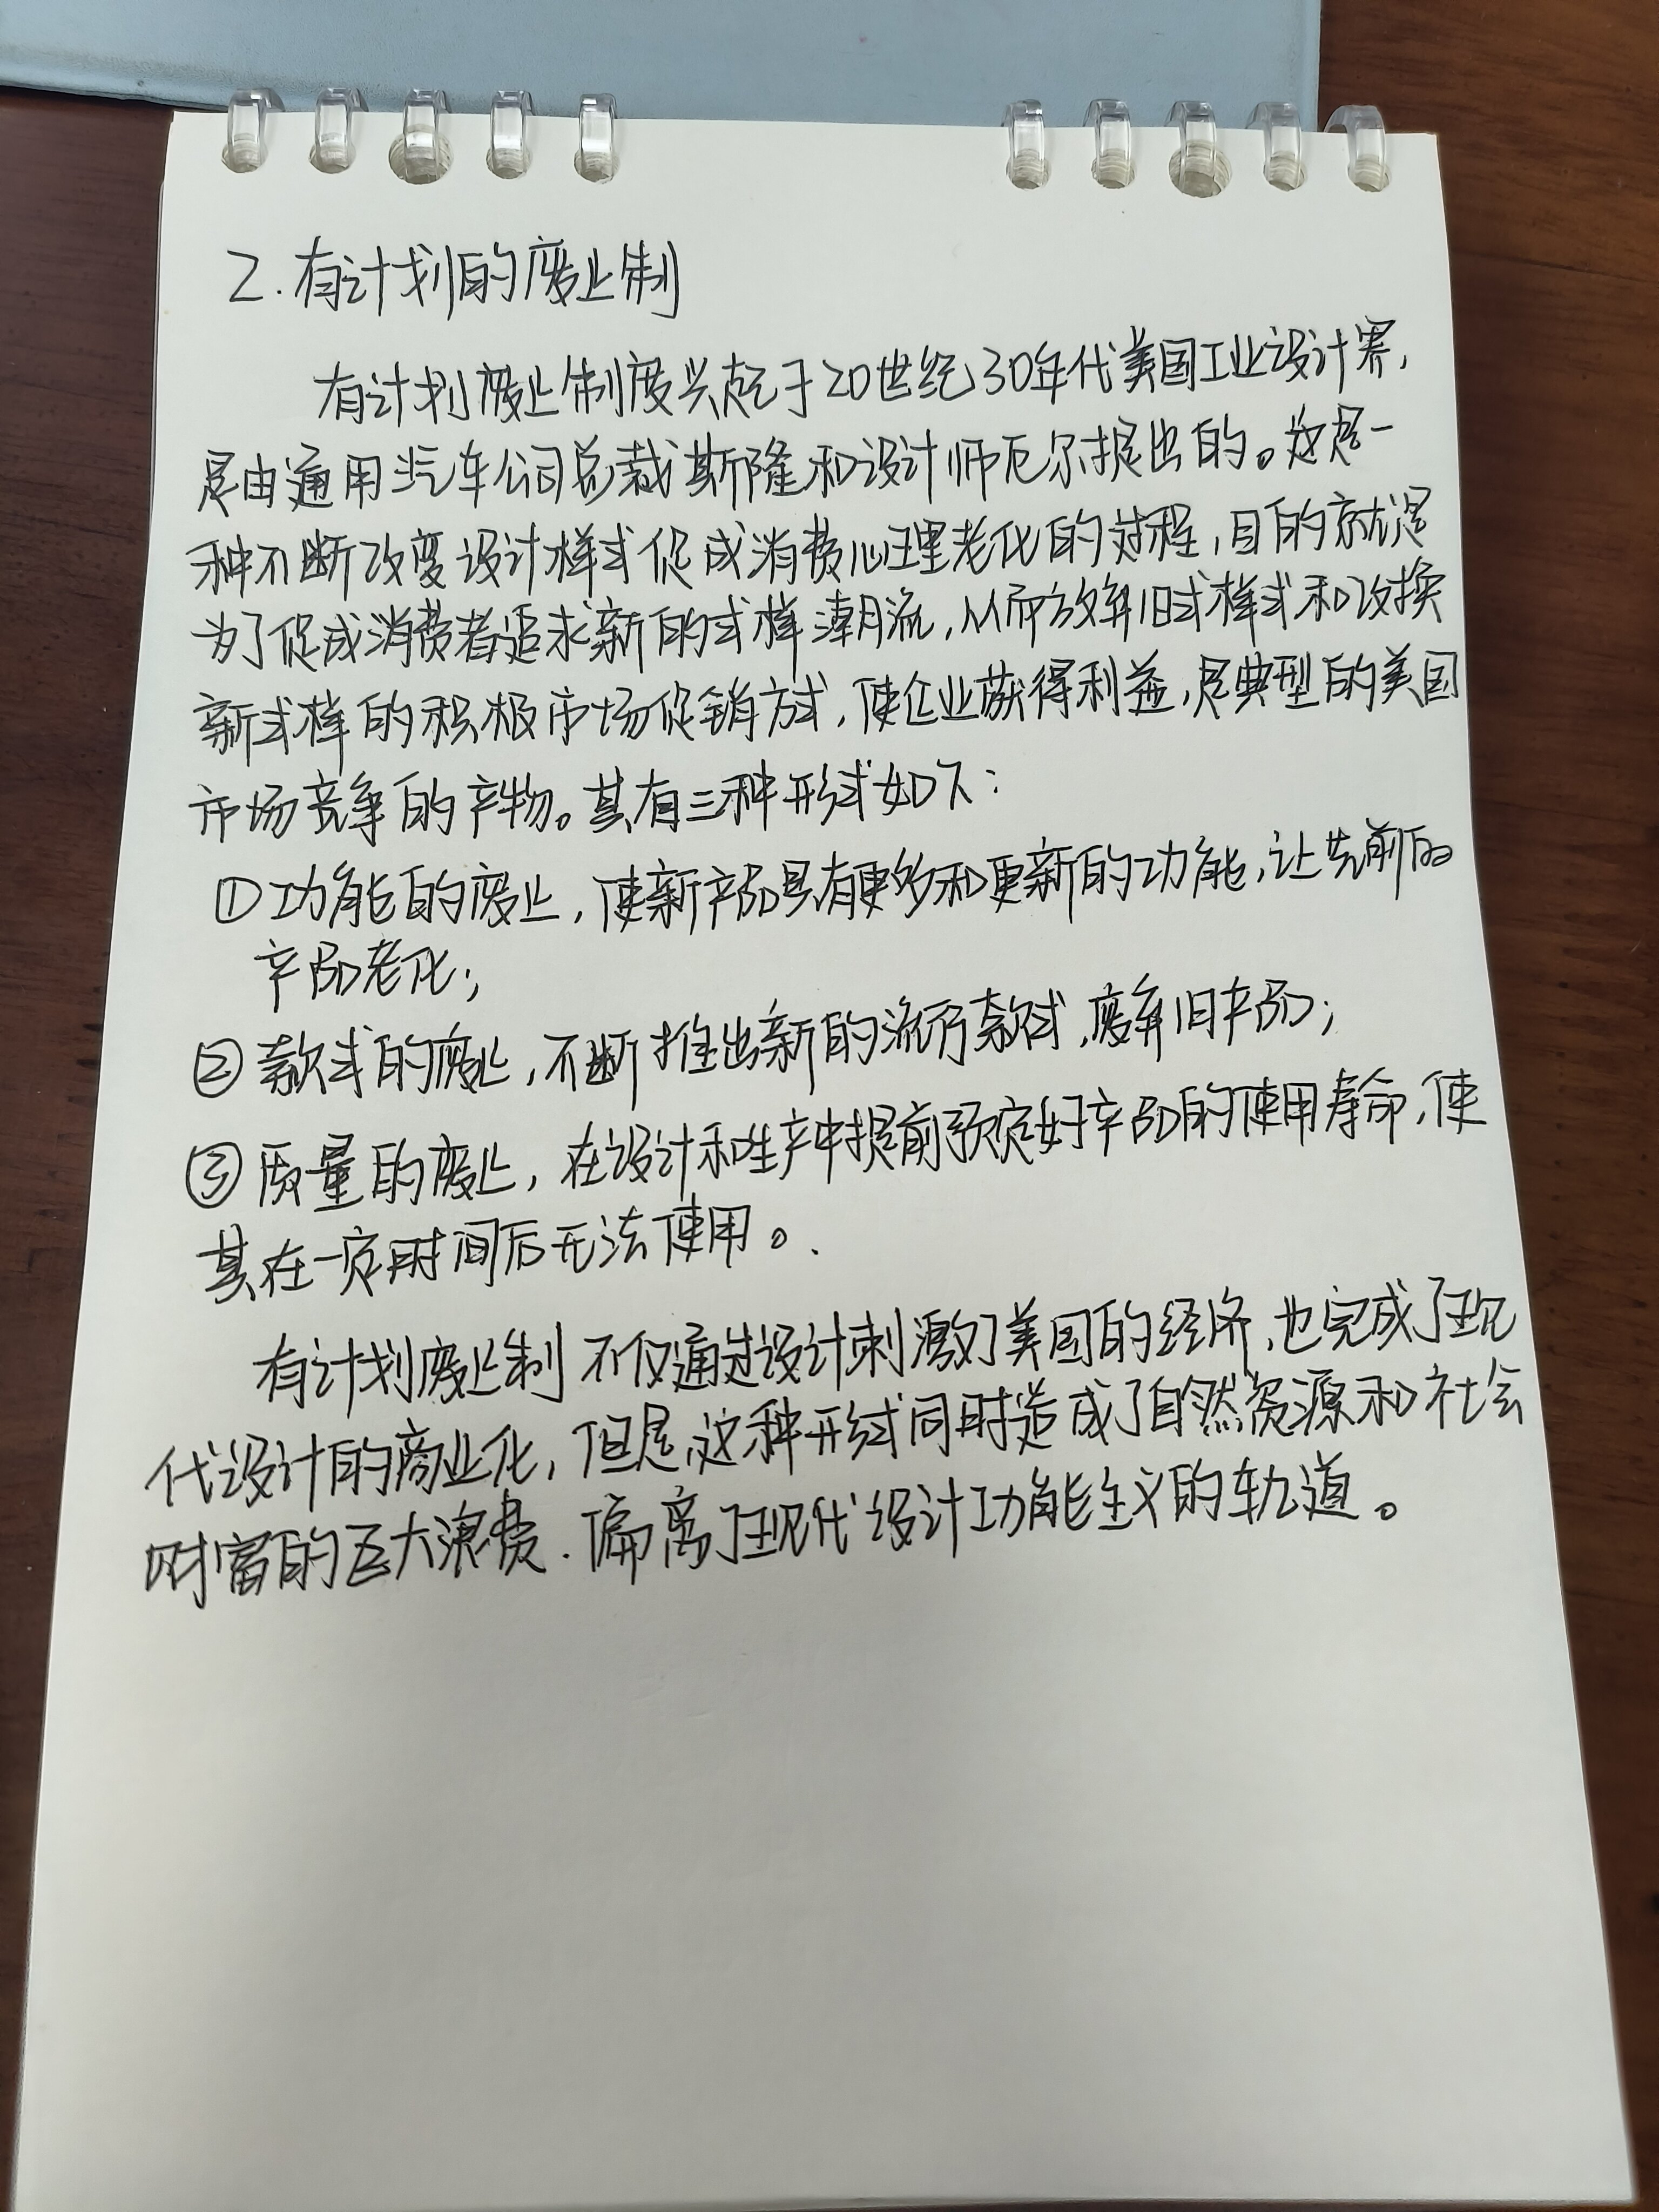 2.有计划的废止制
有计划废止制度兴起于20世纪30年代美国工业设计界,
是由通用汽车公司总裁斯隆和设计师厄尔提出的。这是一
种不断改变设计样式促成消费心理老化的过程,目的就是
为了促成消费者追求新的式样潮流,从而放弃旧式样式和改换
新式样的积极市场促销方式,使企业获得利益,是典型的美国
市场竞争的产物。其有三种形式如下:
①功能的废止,使新产品具有更多和更新的功能,让先前的
产品老化;
②款式的废止,不断推出新的流行款式,废弃旧产品;
③质量的废止,在设计和生产中提前预定好产品的使用寿命,使
其在一定时间后无法使用。
有计划废止制不仅通过设计刺激了美国的经济,也完成了现
代设计的商业化,但是这种形式同时造成了自然资源和社会
财富的巨大浪费.偏离了现代设计功能主义的轨道。